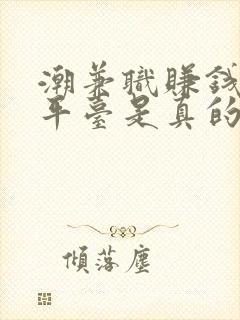 潮兼職賺錢
平臺是真的
傾落塵